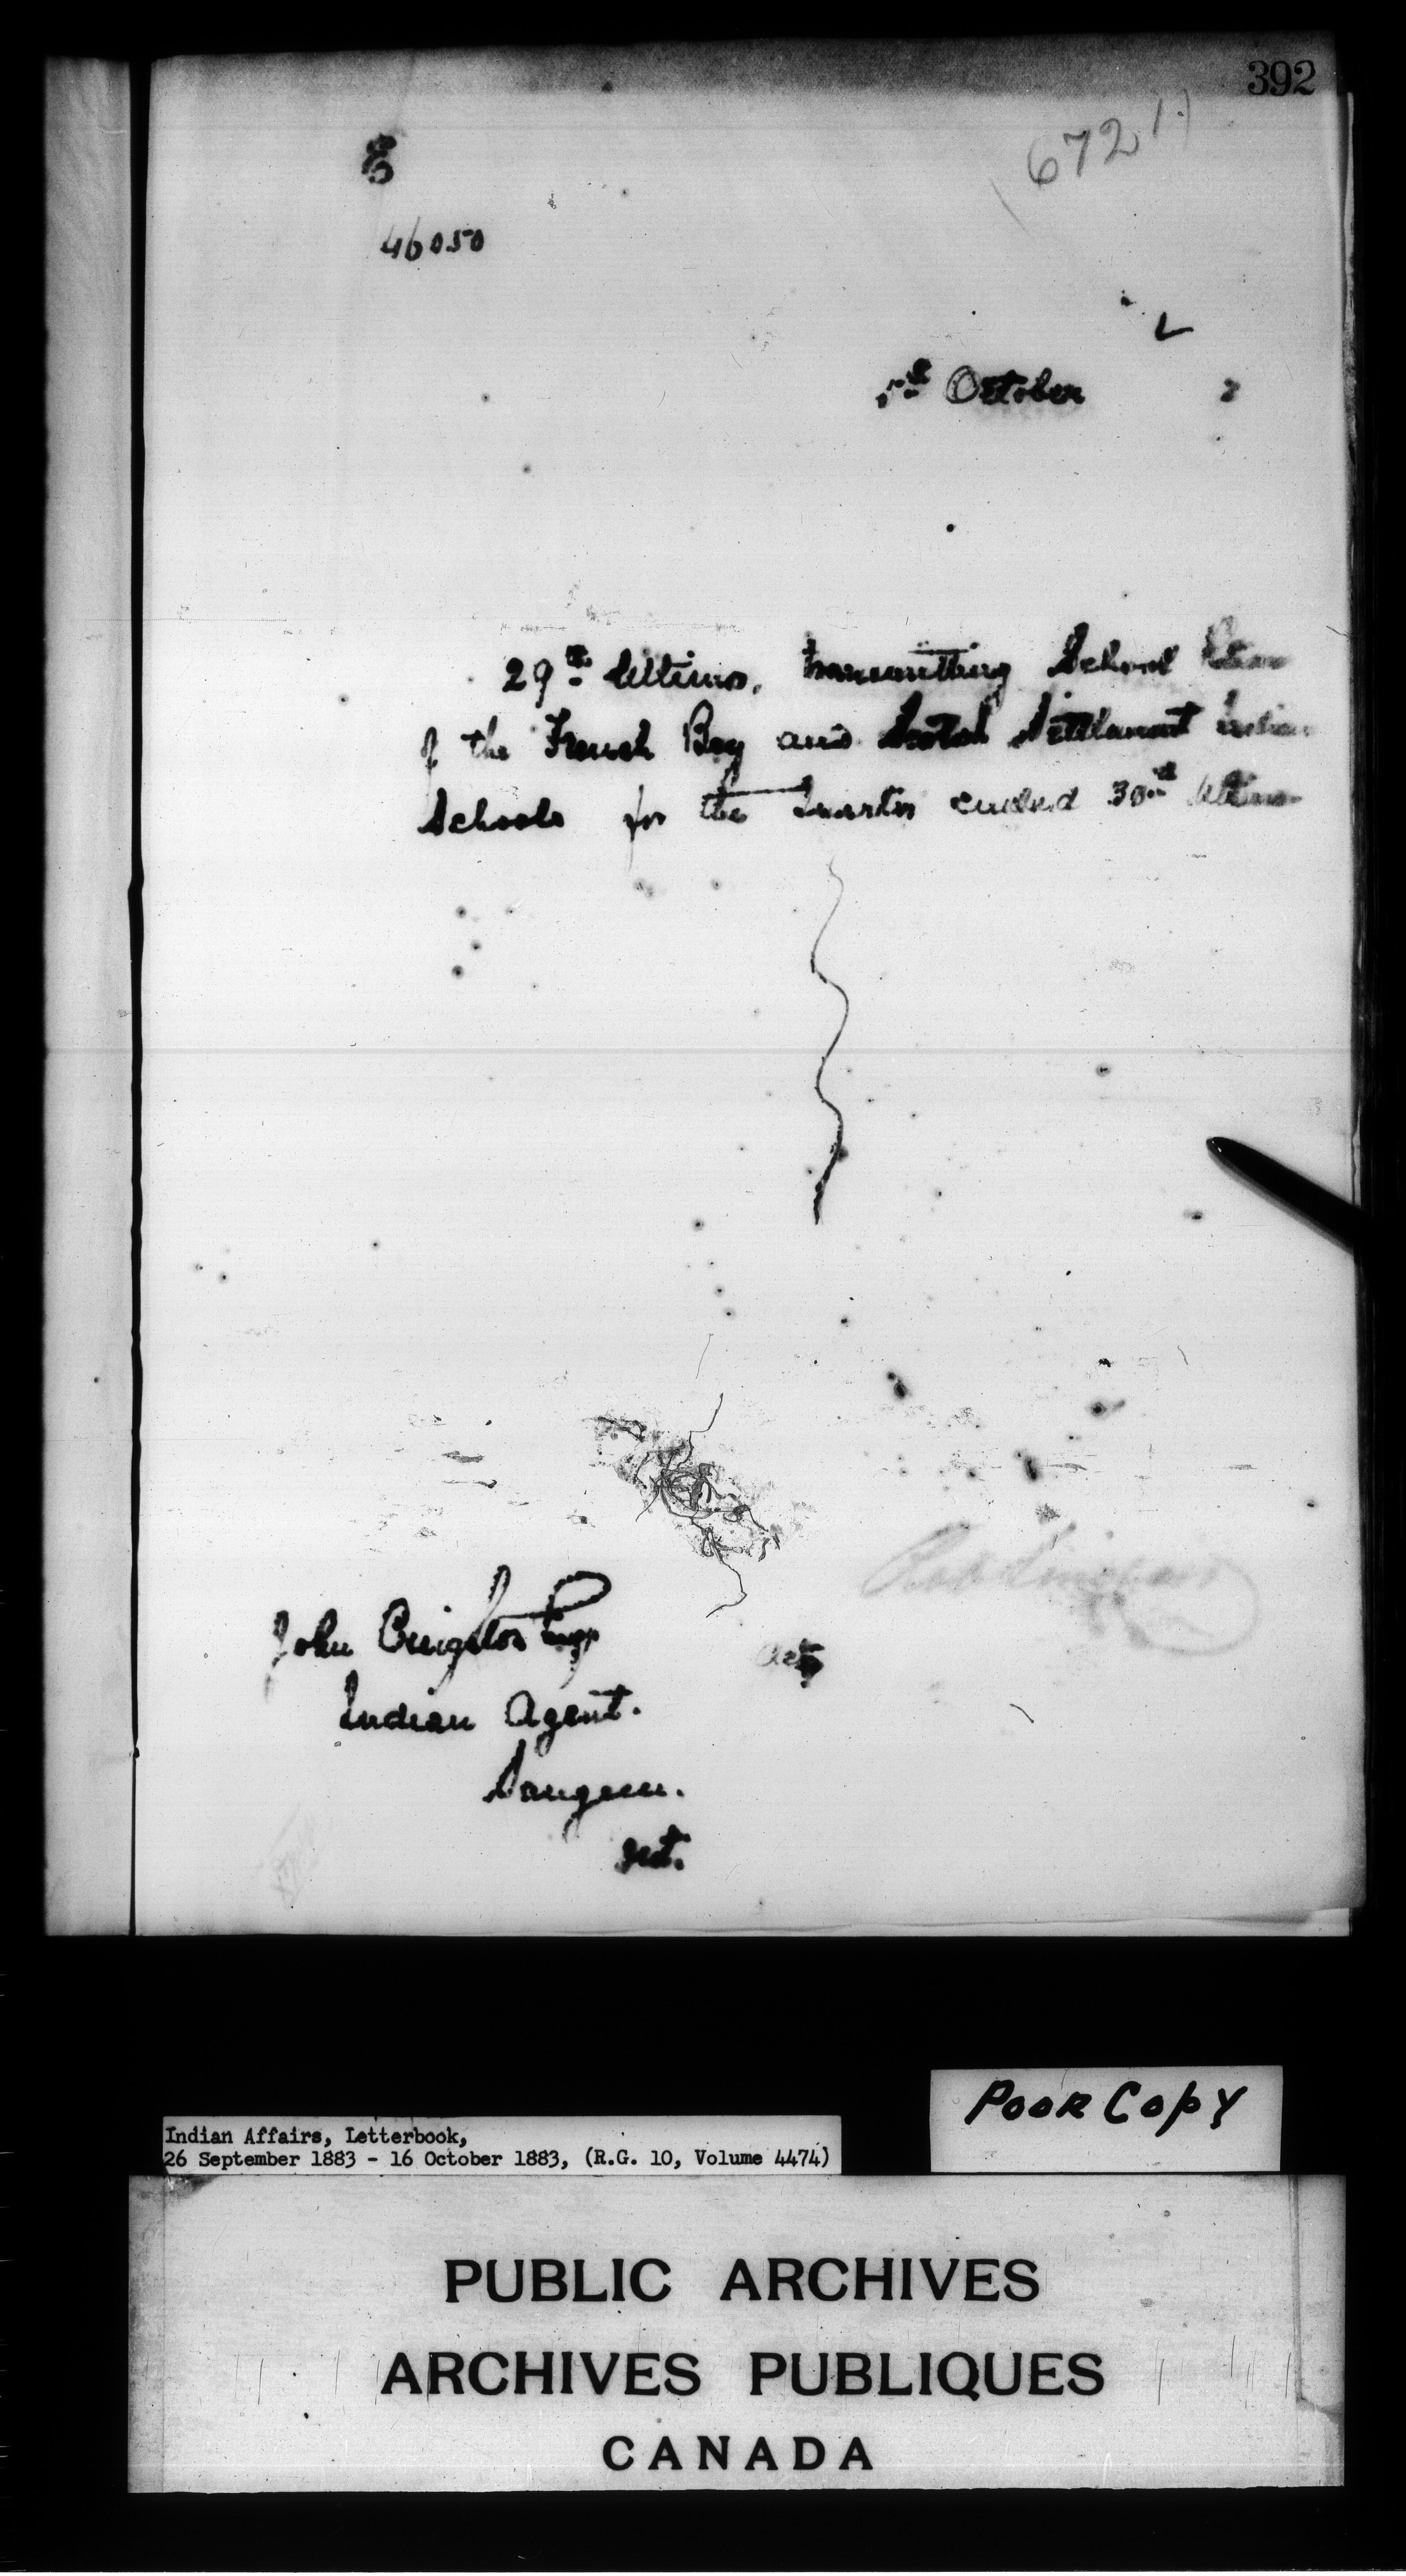 392
46050
5th October 3
29th Ultimo, transmitting School
of the French Bay and Scotch Settlement Indian
Schools for the Quarter ended 30th Ultimo
John Creighton Esqr
Indian Agent.
Saugeen.
Ont.
Poor Copy
Indian Affairs, Letterbook,
26 September 1883 - 16 October 1883, (R.G. 10, Volume 4474)
PUBLIC ARCHIVES
ARCHIVES PUBLIQUES
CANADA